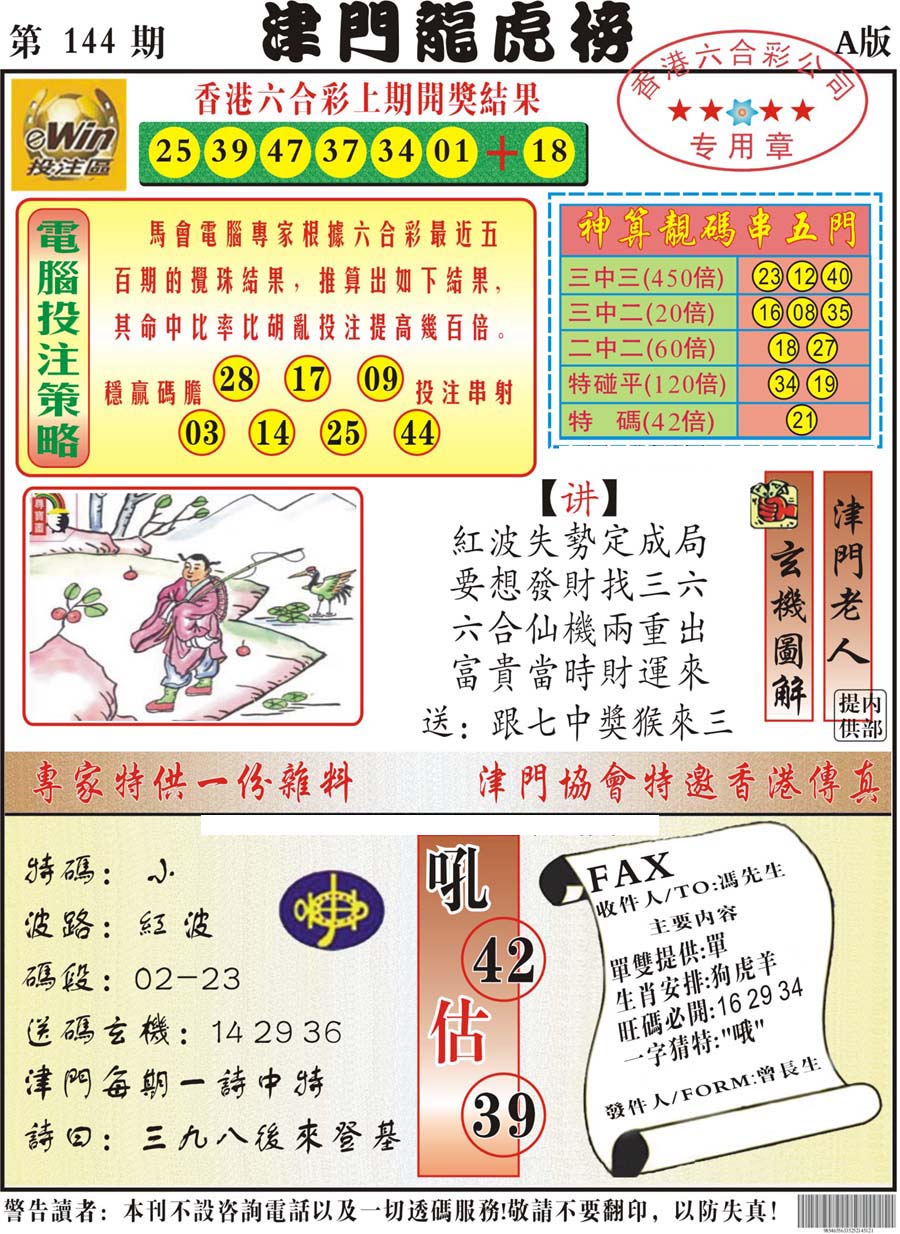 第 144 期
津門龍虎榜
A版
香港六合彩公司
专用章
eWin
投注區
香港六合彩上期開獎結果
25 39 47 37 34 01 + 18
電腦投注策略
馬會電腦專家根據六合彩最近五
百期的攪珠結果，推算出如下結果，
其命中比率比胡亂投注提高幾百倍。
穩贏碼膽 28 17 09 投注串射
03 14 25 44
神算靚碼串五門
三中三(450倍) 23 12 40
三中二(20倍) 16 08 35
二中二(60倍) 18 27
特碰平(120倍) 34 19
特 碼(42倍) 21
尋寶圖
【讲】
紅波失勢定成局
要想發財找三六
六合仙機兩重出
富貴當時財運來
送：跟七中獎猴來三
玄機圖解
津門老人
內部提供
專家特供一份雜料
津門協會特邀香港傳真
特碼：小
波路：紅波
碼段：02-23
送碼玄機：14 29 36
津門每期一詩中特
詩曰：三九八後來登基
吼
42
估
39
FAX
收件人/TO:馮先生
主要內容
單雙提供:單
生肖安排:狗虎羊
旺碼必開:16 29 34
一字猜特:"哦"
發件人/FORM:曾長生
警告讀者：本刊不設咨詢電話以及一切透碼服務!敬請不要翻印，以防失真!